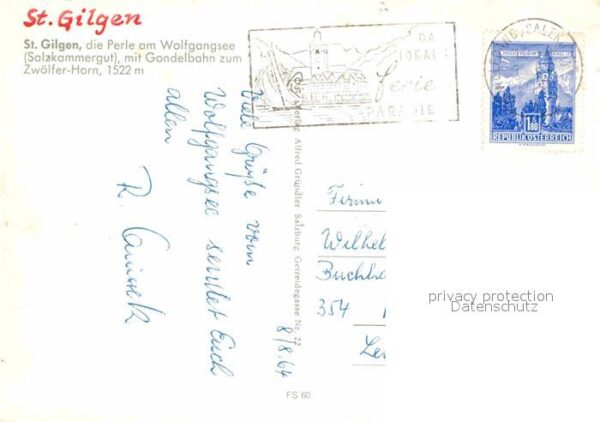 St. Gilgen
St. Gilgen, die Perle am Wolfgangsee
(Salzkammergut), mit Gondelbahn zum
Zwölfer-Horn, 1522 m
DAS
IDEALE
Ferien
PARADIES
1.80
REPUBLIK ÖSTERREICH
Viele Grüße vom
Wolfgangsee sendet Euch
allen
R.
8/8.64
Verlag Alfred Gründler Salzburg Getreidegasse Nr. 22
Firma
Wilhel
Buchha
354
FS 60
privacy protection
Datenschutz